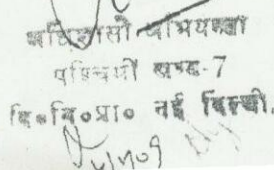 अधिशासी अभियन्ता
पश्चिमी खण्ड-7
दि०वि०प्रा० नई दिल्ली.